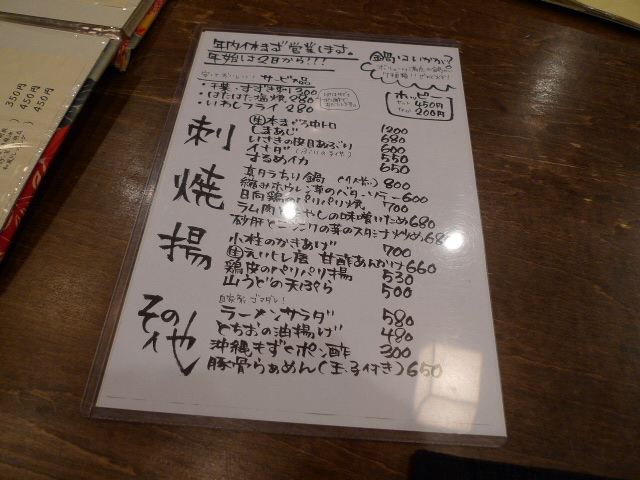 年内休まず営業します。
年始は2日から!!!
鍋はいかが?
サービス品
・千葉・すずき刺 300
・はたはた塩焼 280
・いわしフライ 280
ホッピー
セット 450円
なか 200円
刺
生本まぐろ中トロ 1200
しまあじ 680
いさきの皮目あぶり 600
イナダ 550
するめイカ 650
焼
真タラちり鍋 (1人前) 800
縮みホウレン草のバターソテー 600
日向鶏のパリパリ焼 700
ラム肉ともやしの味噌いため 680
砂肝とニンニクの芽のスタミナ炒め 680
揚
小柱のかきあげ 700
生えいひれ唐 甘酢あんかけ 660
鶏皮のパリパリ揚 530
山うどの天ぷら 500
その他
自家製ゴマダレ!
ラーメンサラダ 580
とちおの油揚げ 480
沖縄もずくポン酢 300
豚骨らぁめん(玉子付き) 650
350円
450円
450円